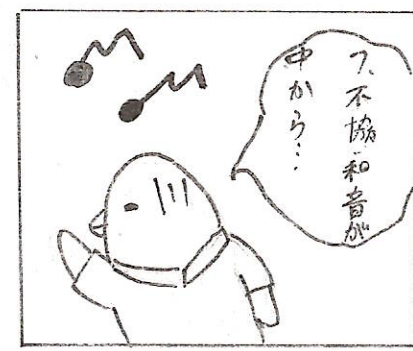 フ、不協和音が
中から…